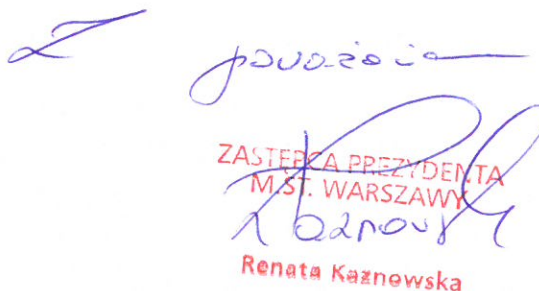 Z poważaniem
ZASTĘPCA PREZYDENTA
M.ST. WARSZAWY
R Kaznowsk
Renata Kaznowska